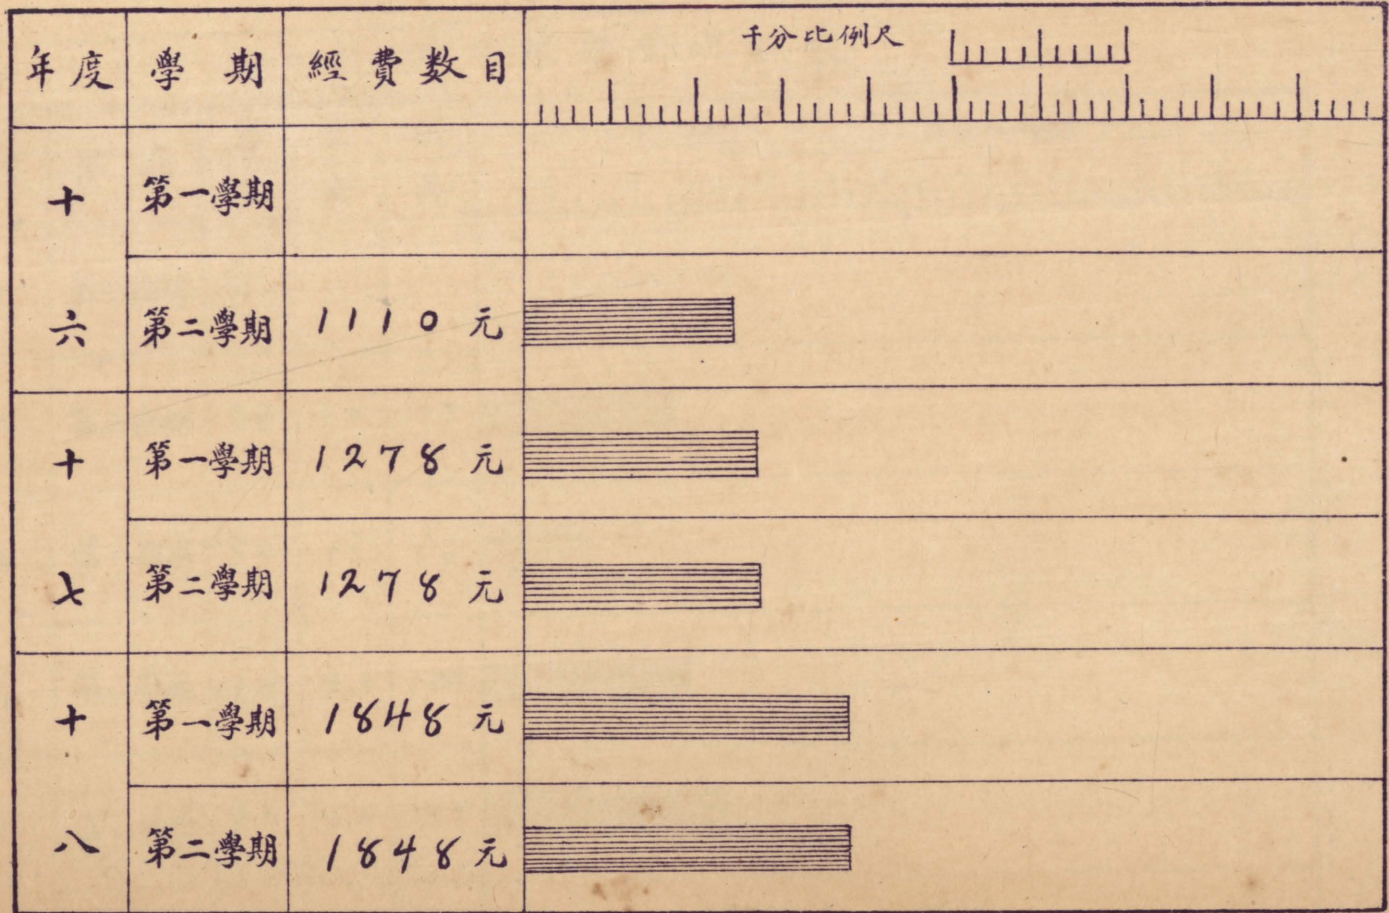 年度 學期 經費数目 千分比例尺
十六 第一學期
第二學期 1110元
十七 第一學期 1278元
第二學期 1278元
十八 第一學期 1848元
第二學期 1848元